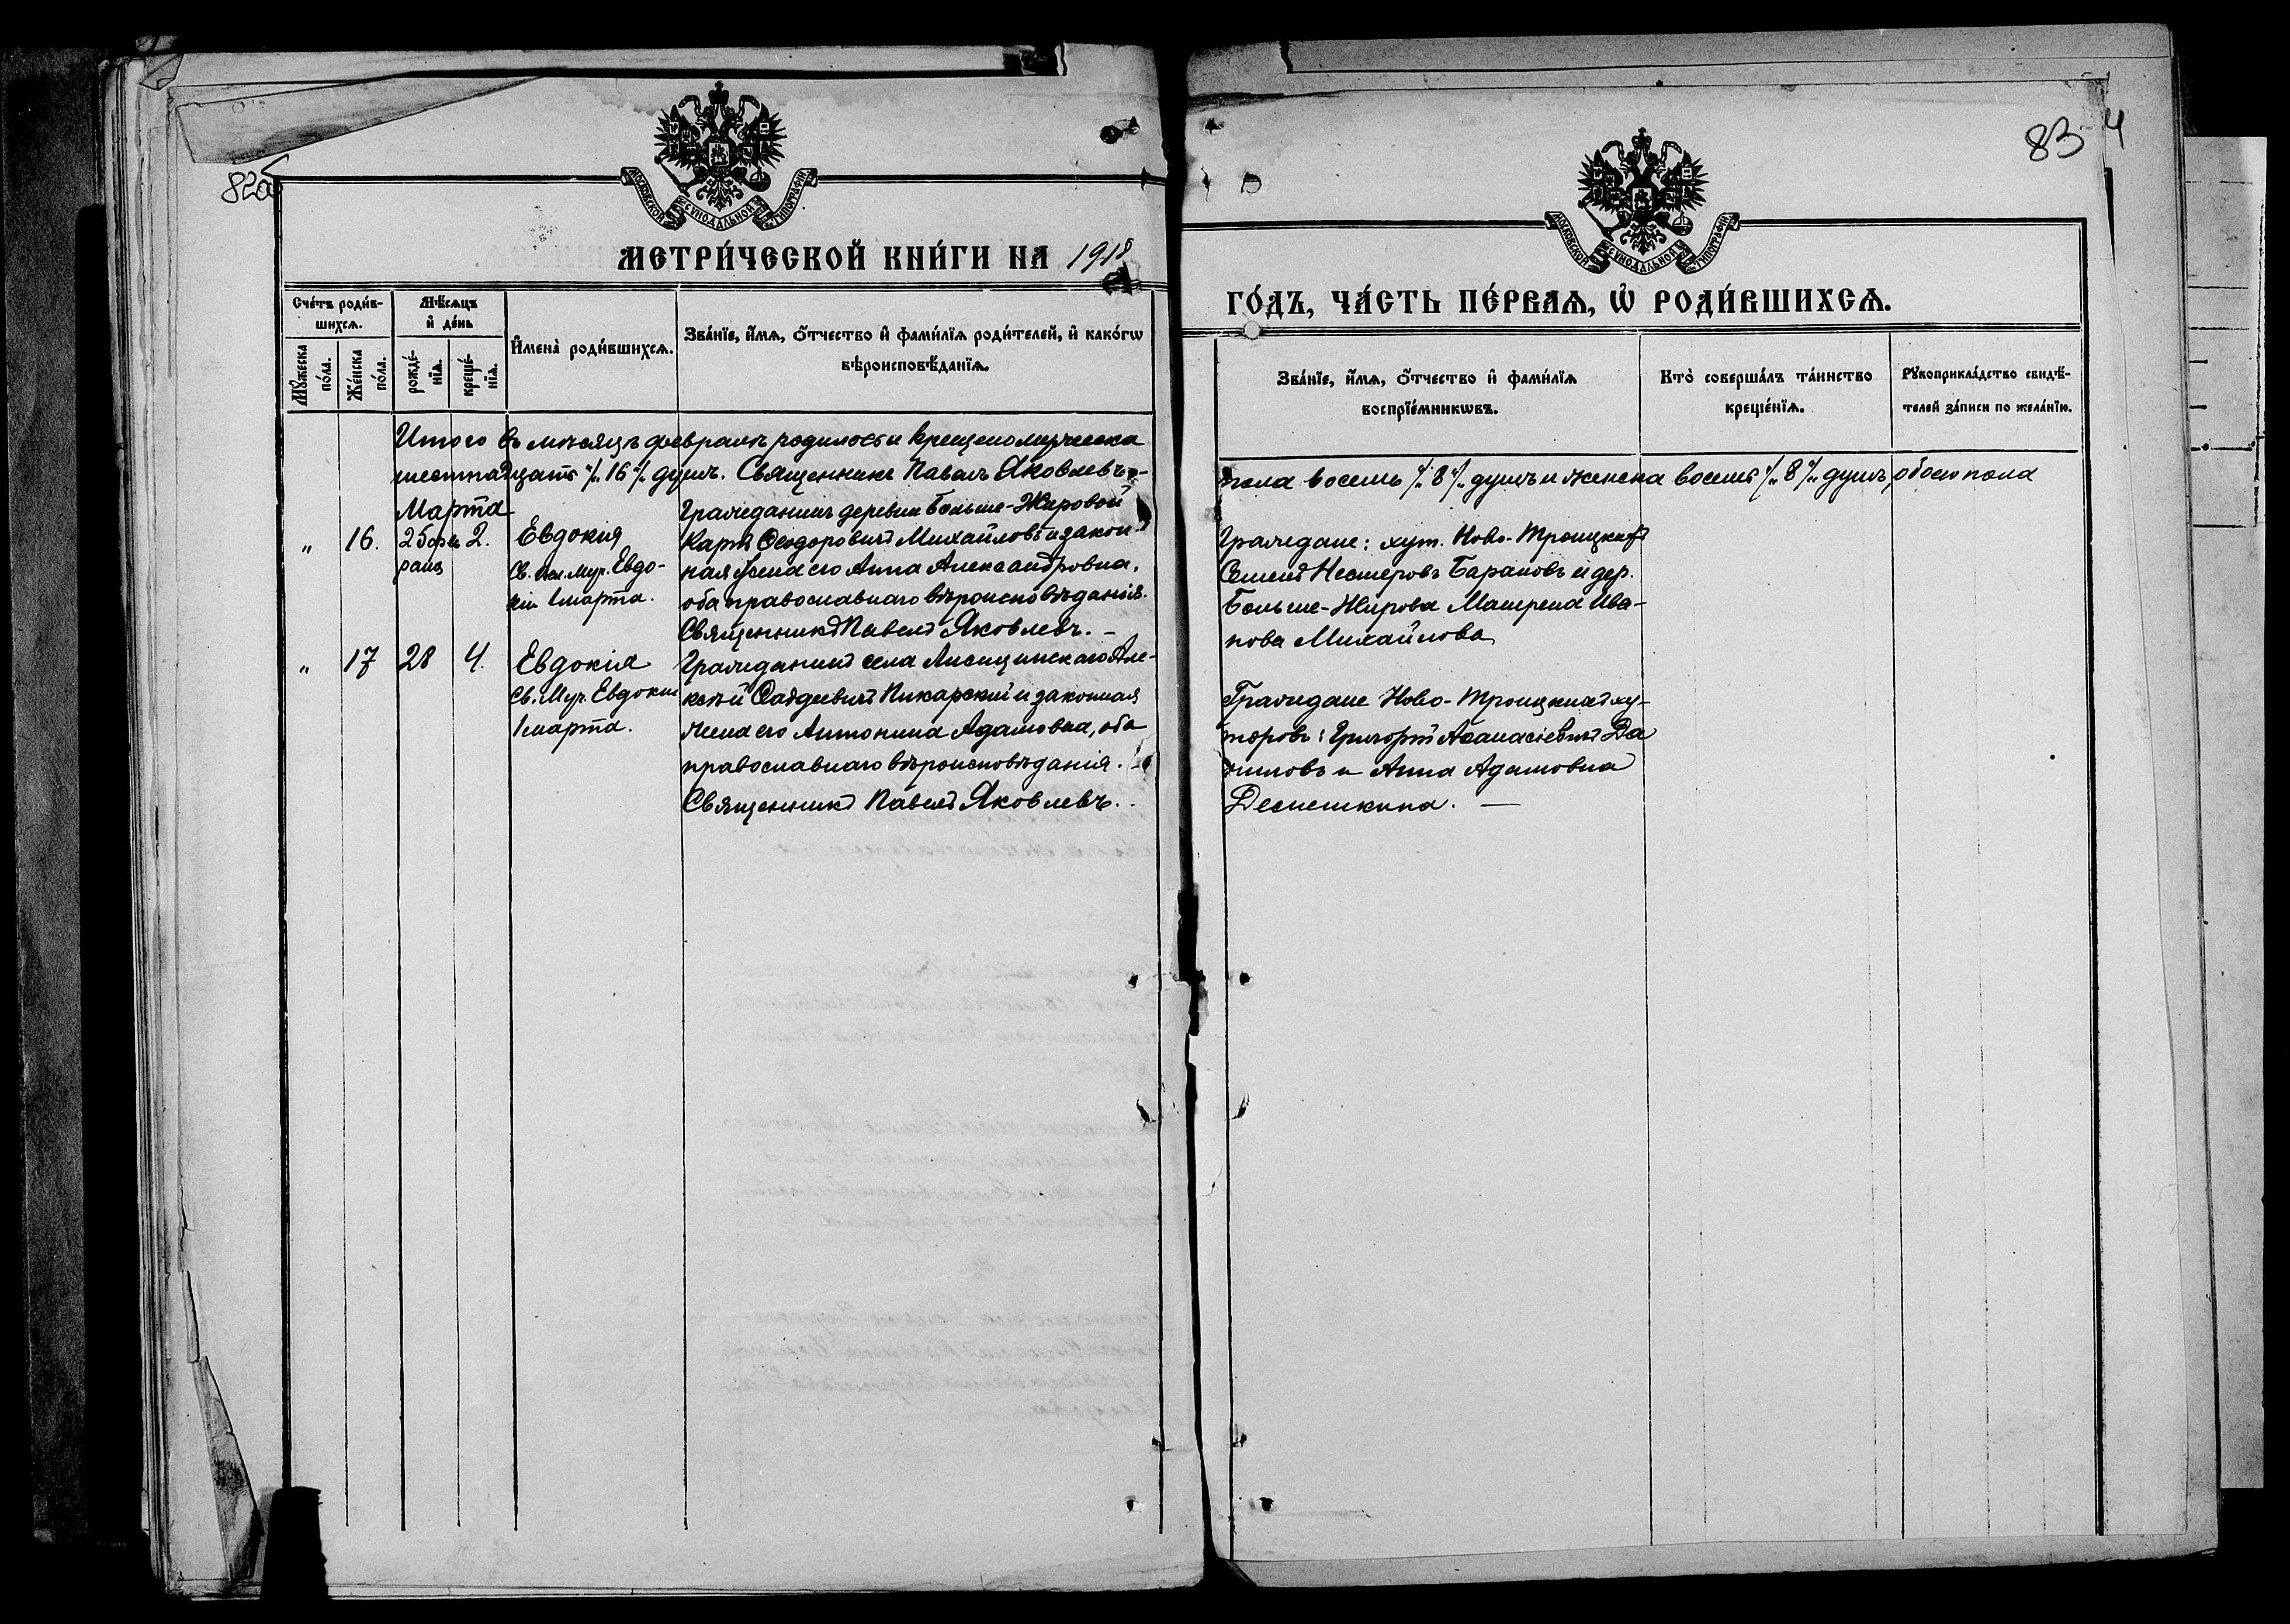 82об
МОСКОВСКОЙ СѴНОДАЛЬНОЙ ТИПОГРАФІИ
МЕТРИ́ЧЕСКОЙ КНИ́ГИ НА 1918
Сче́тъ роди́в-
шихсѧ.
Мѣ́сѧцъ
и҆ де́нь
Мꙋ́жеска
по́ла.
Же́нска
по́ла.
рожде́-
нїѧ.
креще́-
нїѧ.
И҆мена̀ роди́вшихсѧ.
Зва́нїе, и҆́мѧ, ѻ҆́тчество и҆ фами́лїѧ роди́телей, и҆ како́гѡ
вѣроисповѣ́данїѧ.
Итого въ мѣсяцѣ февралѣ родилось и крещено мужеска
шестнадцать "/„ 16 "/„ душъ. Священникъ Павелъ Яковлевъ. -
Марта
" 16. 25 фев 2. Евдокія
раля
Св. Мур. Евдо-
кіи 1 марта.
Гражданинъ деревни Больше-Жировой
Карпъ Ѳеодоровичъ Михайловъ и закон-
ная жена его Анна Александровна,
оба православнаго вѣроисповѣданія.
Священникъ Павелъ Яковлевъ. -
" 17 28 4. Евдокія
Св. Мур. Евдокіи
1 марта.
Гражданинъ села Лисицинскаго Але-
ксѣй Ѳаддеевичъ Пикарскій и законная
жена его Антонина Адамовна, оба
православнаго вѣроисповѣданія.
Священникъ Павелъ Яковлевъ.
83
4
МОСКОВСКОЙ СѴНОДАЛЬНОЙ ТИПОГРАФІИ
ГО́ДЪ, ЧА́СТЬ ПЕ́РВАѦ, Ѡ҆ РОДИ́ВШИХСѦ.
Зва́нїе, и҆́мѧ, ѻ҆́тчество и҆ фами́лїѧ
воспрїе́мникѡвъ.
Кто̀ соверша́лъ та́инство
креще́нїѧ.
Рꙋкоприкла́дство свидѣ́-
телей за́писи по жела́нїю.
пола восемь "/„ 8 "/„ душъ и женска восемь "/„ 8 "/„ душъ, обоего пола
Граждане: хут. Ново-Троицкихъ
Семенъ Нестеровъ Барановъ и дер.
Больше-Жирова Матрена Ива-
нова Михайлова
Граждане Ново-Троицкихъ ху-
торовъ: Григорій Аѳанасіевичъ Да
ниловъ и Анна Адамовна